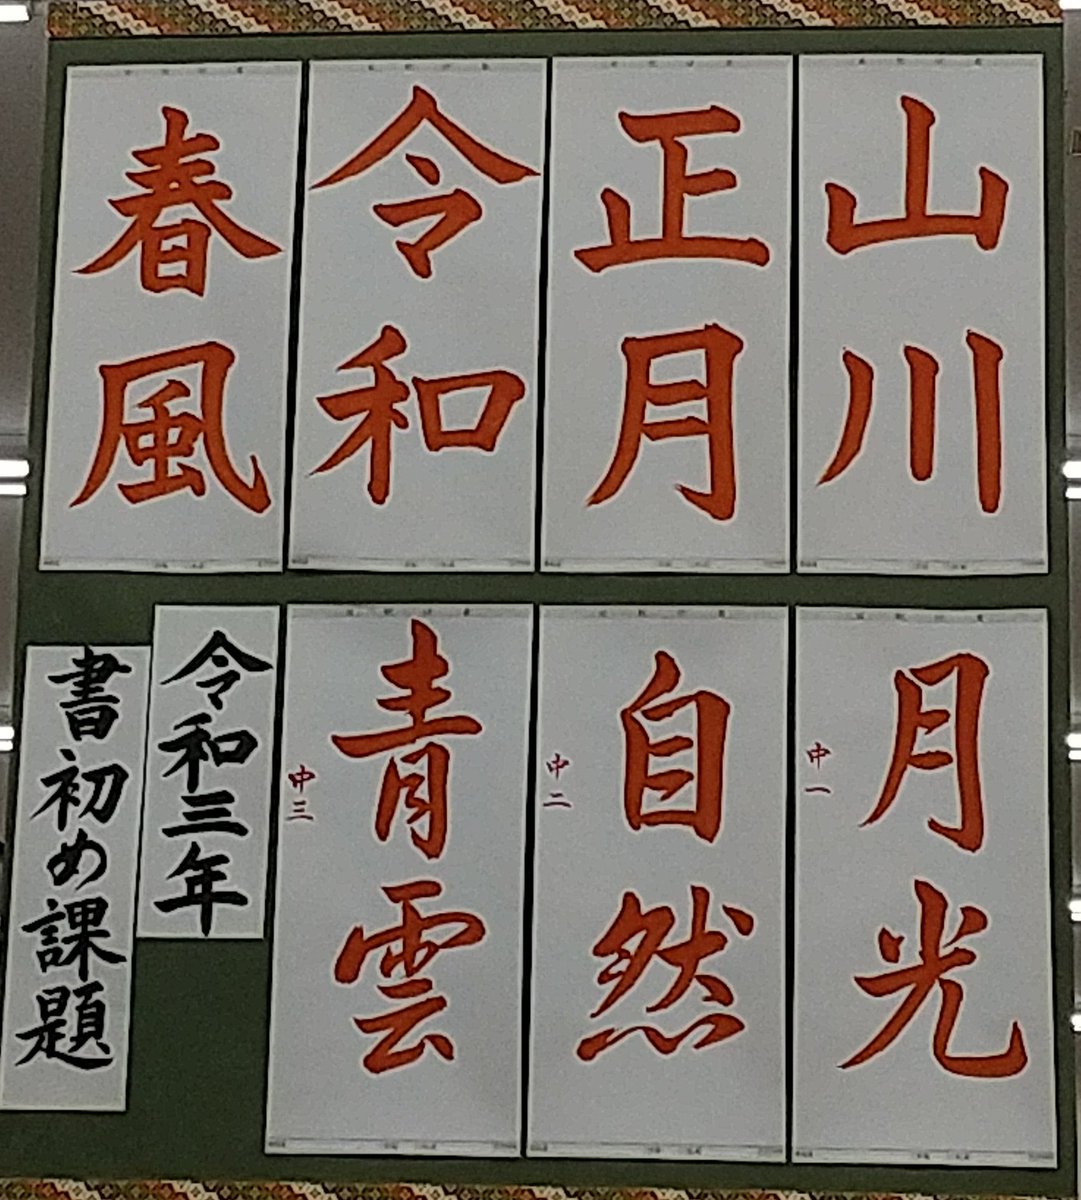 山川
正月
令和
春風
月光
中一
自然
中二
青雲
中三
令和三年
書初め課題